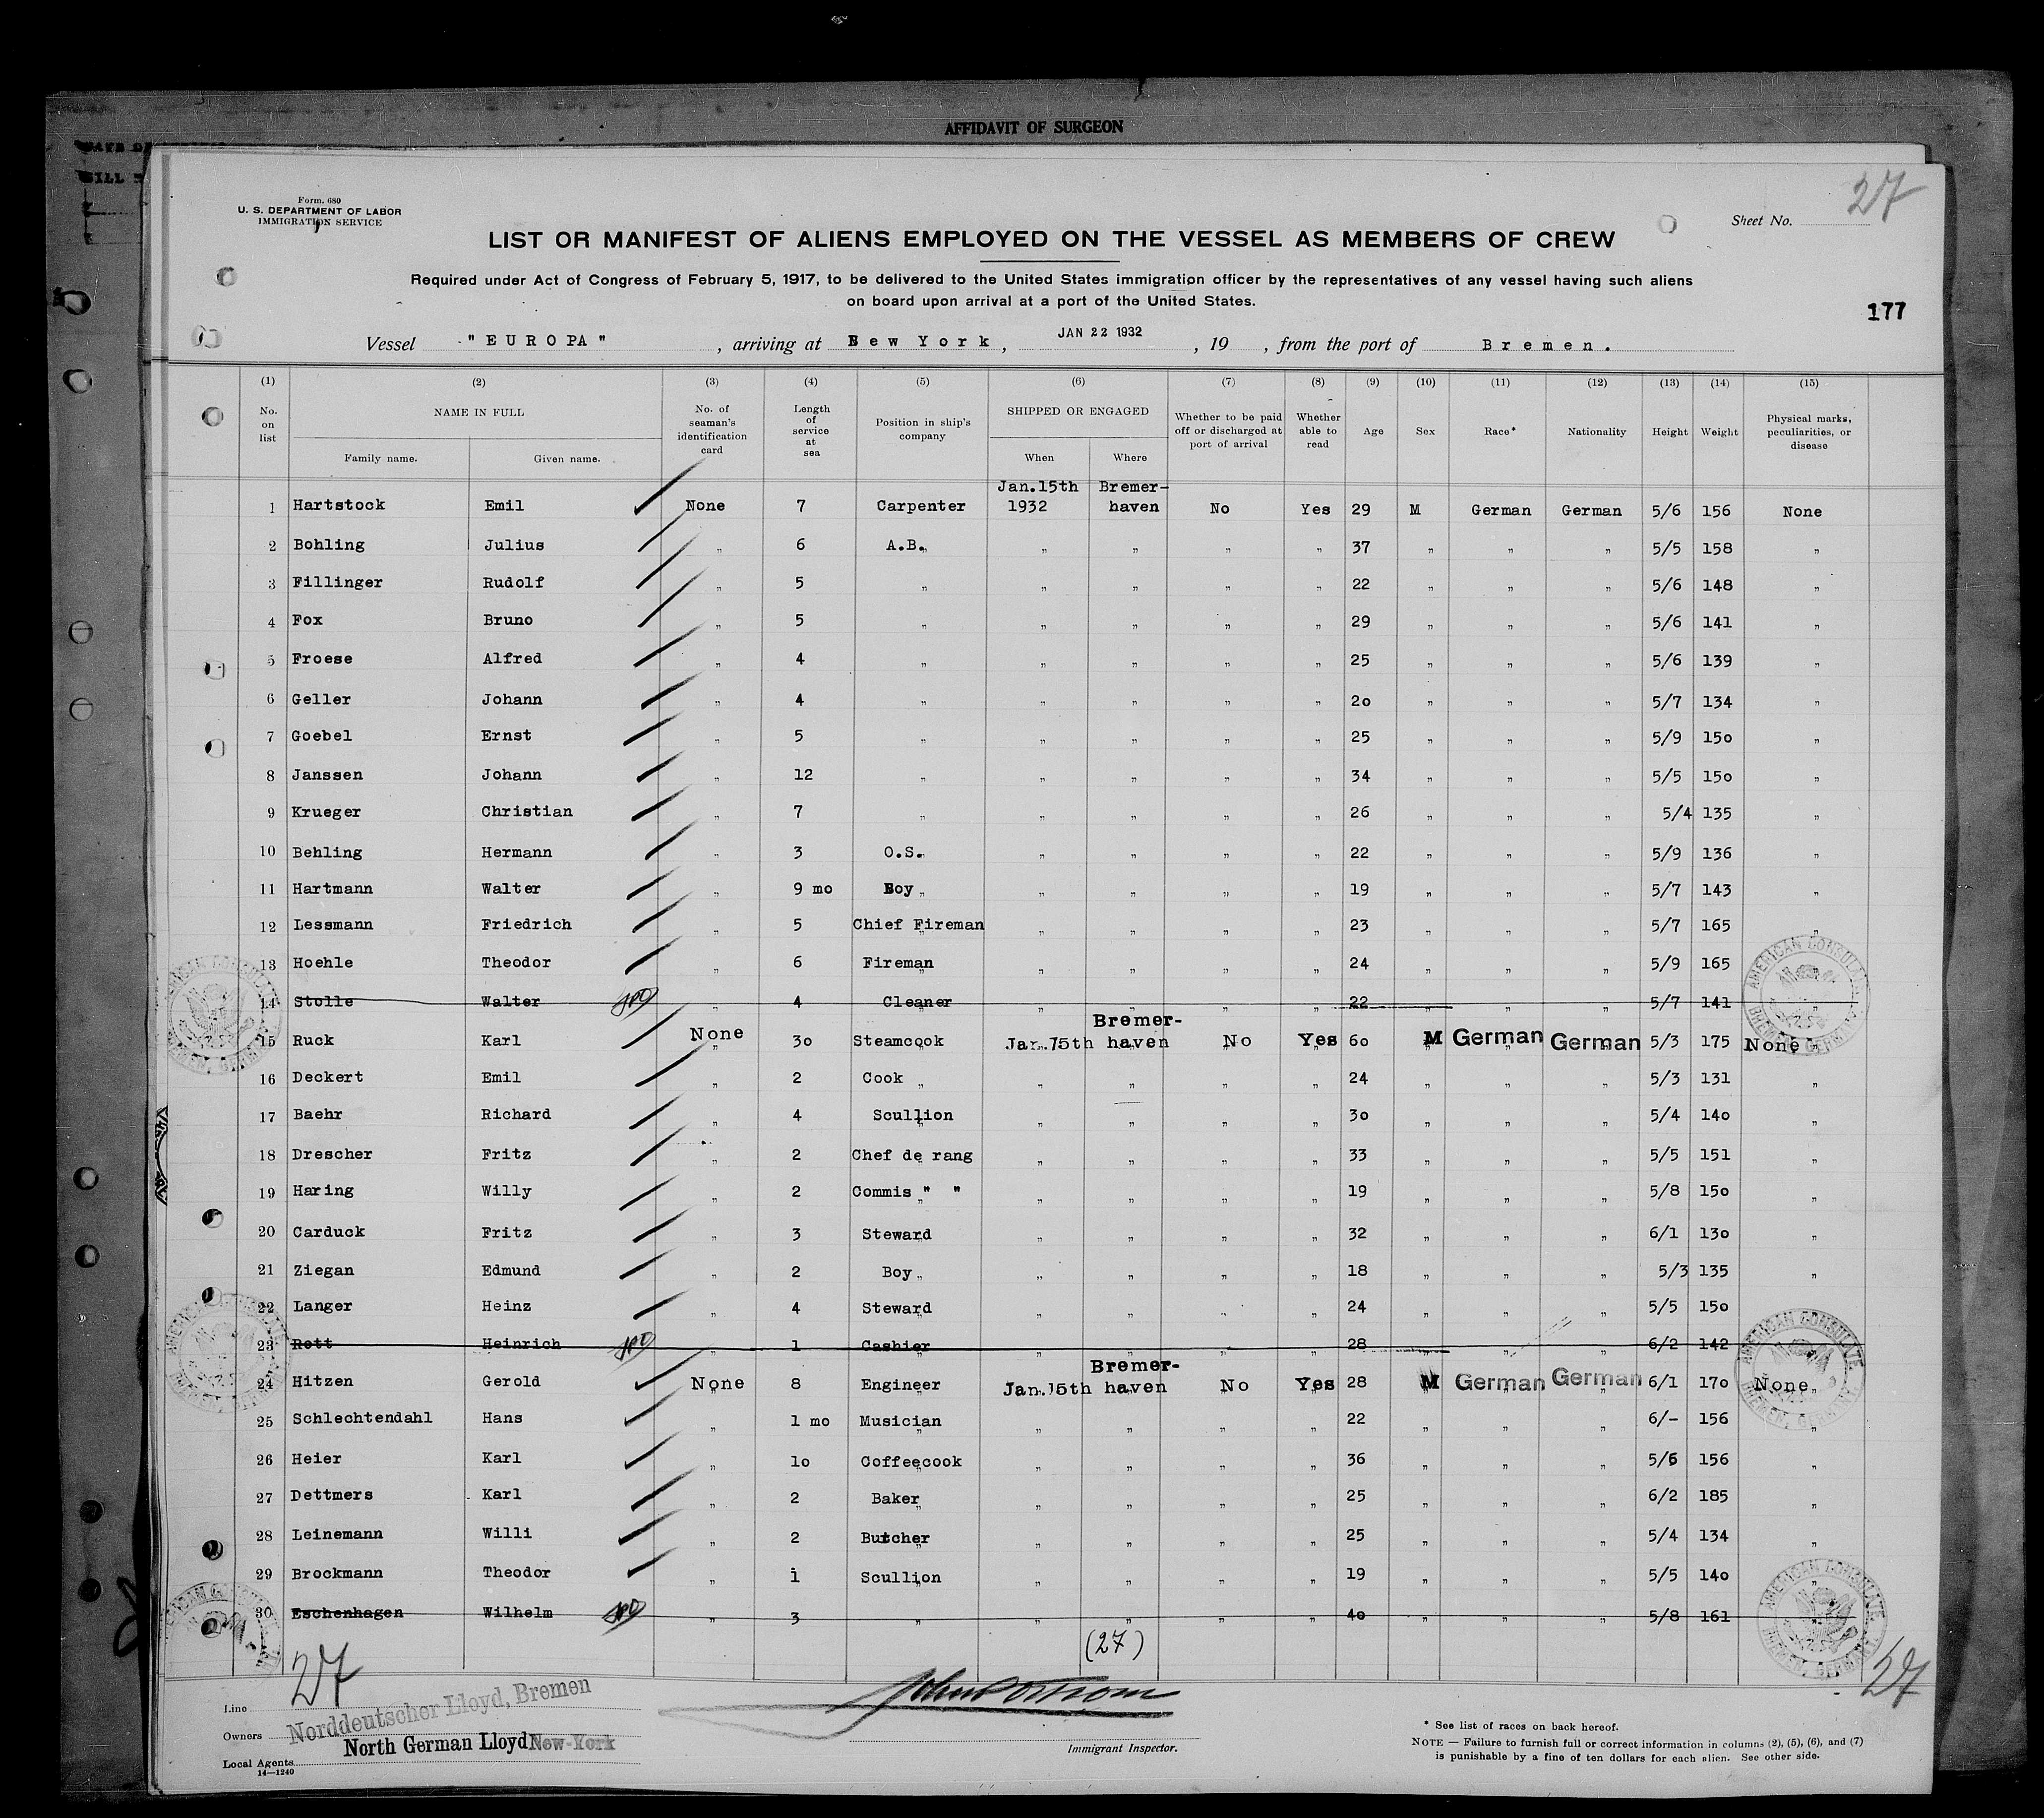 AFFIDAVIT OF SURGEON
Form. 680
U. S. DEPARTMENT OF LABOR
IMMIGRATION SERVICE
Sheet No. 27
LIST OR MANIFEST OF ALIENS EMPLOYED ON THE VESSEL AS MEMBERS OF CREW
Required under Act of Congress of February 5, 1917, to be delivered to the United States immigration officer by the representatives of any vessel having such aliens
on board upon arrival at a port of the United States.
177
Vessel "EUROPA", arriving at New York, JAN 22 1932, 19 , from the port of Bremen.
(1) (2) (3) (4) (5) (6) (7) (8) (9) (10) (11) (12) (13) (14) (15)
No. on list NAME IN FULL Family name. Given name. No. of seaman's identification card Length of service at sea Position in ship's company SHIPPED OR ENGAGED When Where Whether to be paid off or discharged at port of arrival Whether able to read Age Sex Race* Nationality Height Weight Physical marks, peculiarities, or disease
1 Hartstock Emil None 7 Carpenter Jan.15th 1932 Bremer-haven No Yes 29 M German German 5/6 156 None
2 Bohling Julius „ 6 A.B. „ „ „ „ 37 „ „ „ 5/5 158 „
3 Fillinger Rudolf „ 5 „ „ „ „ „ 22 „ „ „ 5/6 148 „
4 Fox Bruno „ 5 „ „ „ „ „ 29 „ „ „ 5/6 141 „
5 Froese Alfred „ 4 „ „ „ „ „ 25 „ „ „ 5/6 139 „
6 Geller Johann „ 4 „ „ „ „ „ 20 „ „ „ 5/7 134 „
7 Goebel Ernst „ 5 „ „ „ „ „ 25 „ „ „ 5/9 150 „
8 Janssen Johann „ 12 „ „ „ „ „ 34 „ „ „ 5/5 150 „
9 Krueger Christian „ 7 „ „ „ „ „ 26 „ „ „ 5/4 135 „
10 Behling Hermann „ 3 O.S. „ „ „ „ 22 „ „ „ 5/9 136 „
11 Hartmann Walter „ 9 mo Boy „ „ „ „ 19 „ „ „ 5/7 143 „
12 Lessmann Friedrich „ 5 Chief Fireman „ „ „ „ 23 „ „ „ 5/7 165 „
13 Hoehle Theodor „ 6 Fireman „ „ „ „ 24 „ „ „ 5/9 165 „
14 Stolle Walter „ 4 Cleaner „ „ „ „ 22 „ „ „ 5/7 141 „
15 Ruck Karl None 30 Steamcook Jan.15th Bremer-haven No Yes 60 M German German 5/3 175 None
16 Deckert Emil „ 2 Cook „ „ „ „ 24 „ „ „ 5/3 131 „
17 Baehr Richard „ 4 Scullion „ „ „ „ 30 „ „ „ 5/4 140 „
18 Drescher Fritz „ 2 Chef de rang „ „ „ „ 33 „ „ „ 5/5 151 „
19 Haring Willy „ 2 Commis " " „ „ „ „ 19 „ „ „ 5/8 150 „
20 Carduck Fritz „ 3 Steward „ „ „ „ 32 „ „ „ 6/1 130 „
21 Ziegan Edmund „ 2 Boy „ „ „ „ 18 „ „ „ 5/3 135 „
22 Langer Heinz „ 4 Steward „ „ „ „ 24 „ „ „ 5/5 150 „
23 Rott Heinrich „ 1 Cashier „ „ „ „ 28 „ „ „ 6/2 142 „
24 Hitzen Gerold None 8 Engineer Jan.15th Bremer-haven No Yes 28 M German German 6/1 170 None
25 Schlechtendahl Hans „ 1 mo Musician „ „ „ „ 22 „ „ „ 6/- 156 „
26 Heier Karl „ 10 Coffeecook „ „ „ „ 36 „ „ „ 5/6 156 „
27 Dettmers Karl „ 2 Baker „ „ „ „ 25 „ „ „ 6/2 185 „
28 Leinemann Willi „ 2 Butcher „ „ „ „ 25 „ „ „ 5/4 134 „
29 Brockmann Theodor „ 1 Scullion „ „ „ „ 19 „ „ „ 5/5 140 „
30 Eschenhagen Wilhelm „ 3 „ „ „ „ „ 40 „ „ „ 5/8 161 „
(27)
27
27
AMERICAN CONSULATE
BREMEN, GERMANY
Line
Owners Norddeutscher Lloyd, Bremen
Local Agents North German Lloyd New-York
14—1240
Immigrant Inspector.
* See list of races on back hereof.
NOTE — Failure to furnish full or correct information in columns (2), (5), (6), and (7)
is punishable by a fine of ten dollars for each alien. See other side.